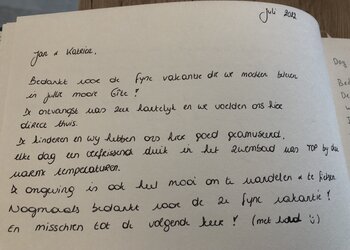 Juli 2012
Jan & Katrien,
Bedankt voor de fijne vakantie die we mochten beleven
in jullie mooie Gîte!
De ontvangst was zeer hartelijk en we voelden ons hier
direct thuis.
De kinderen en wij hebben ons hier goed geamuseerd,
elke dag een verfrissend duik in het zwembad was TOP bij deze
warme temperaturen.
De omgeving is ook heel mooi om te wandelen & te fietsen
Nogmaals bedankt voor de 2e fijne vakantie!
En misschien tot de volgende keer! (met hond :))
Dag
Be
De
w